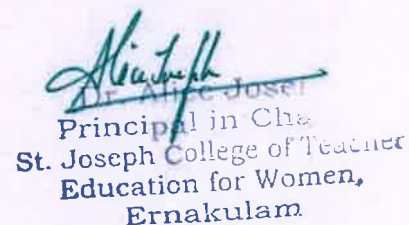 Alice Joseph
Dr. Alice Josep
Principal in Cha
St. Joseph College of Teacher
Education for Women,
Ernakulam